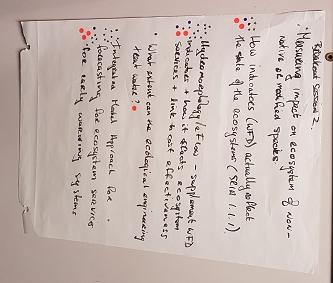 Breakout Session 2.
• Measuring impact on ecosystem of non-
native or modified species
• How indicators (WFD) actually reflect
the state of the ecosystems (SPIA 1.1.1)
• Hydromorphology/eFlow - supplement WFD
indicators + how it affects ecosystem
services + link to cost effectiveness
• What extent can the ecological engineering
treat water?
• Integrative Model Approach for
forecasting for ecosystem services
for early warning systems